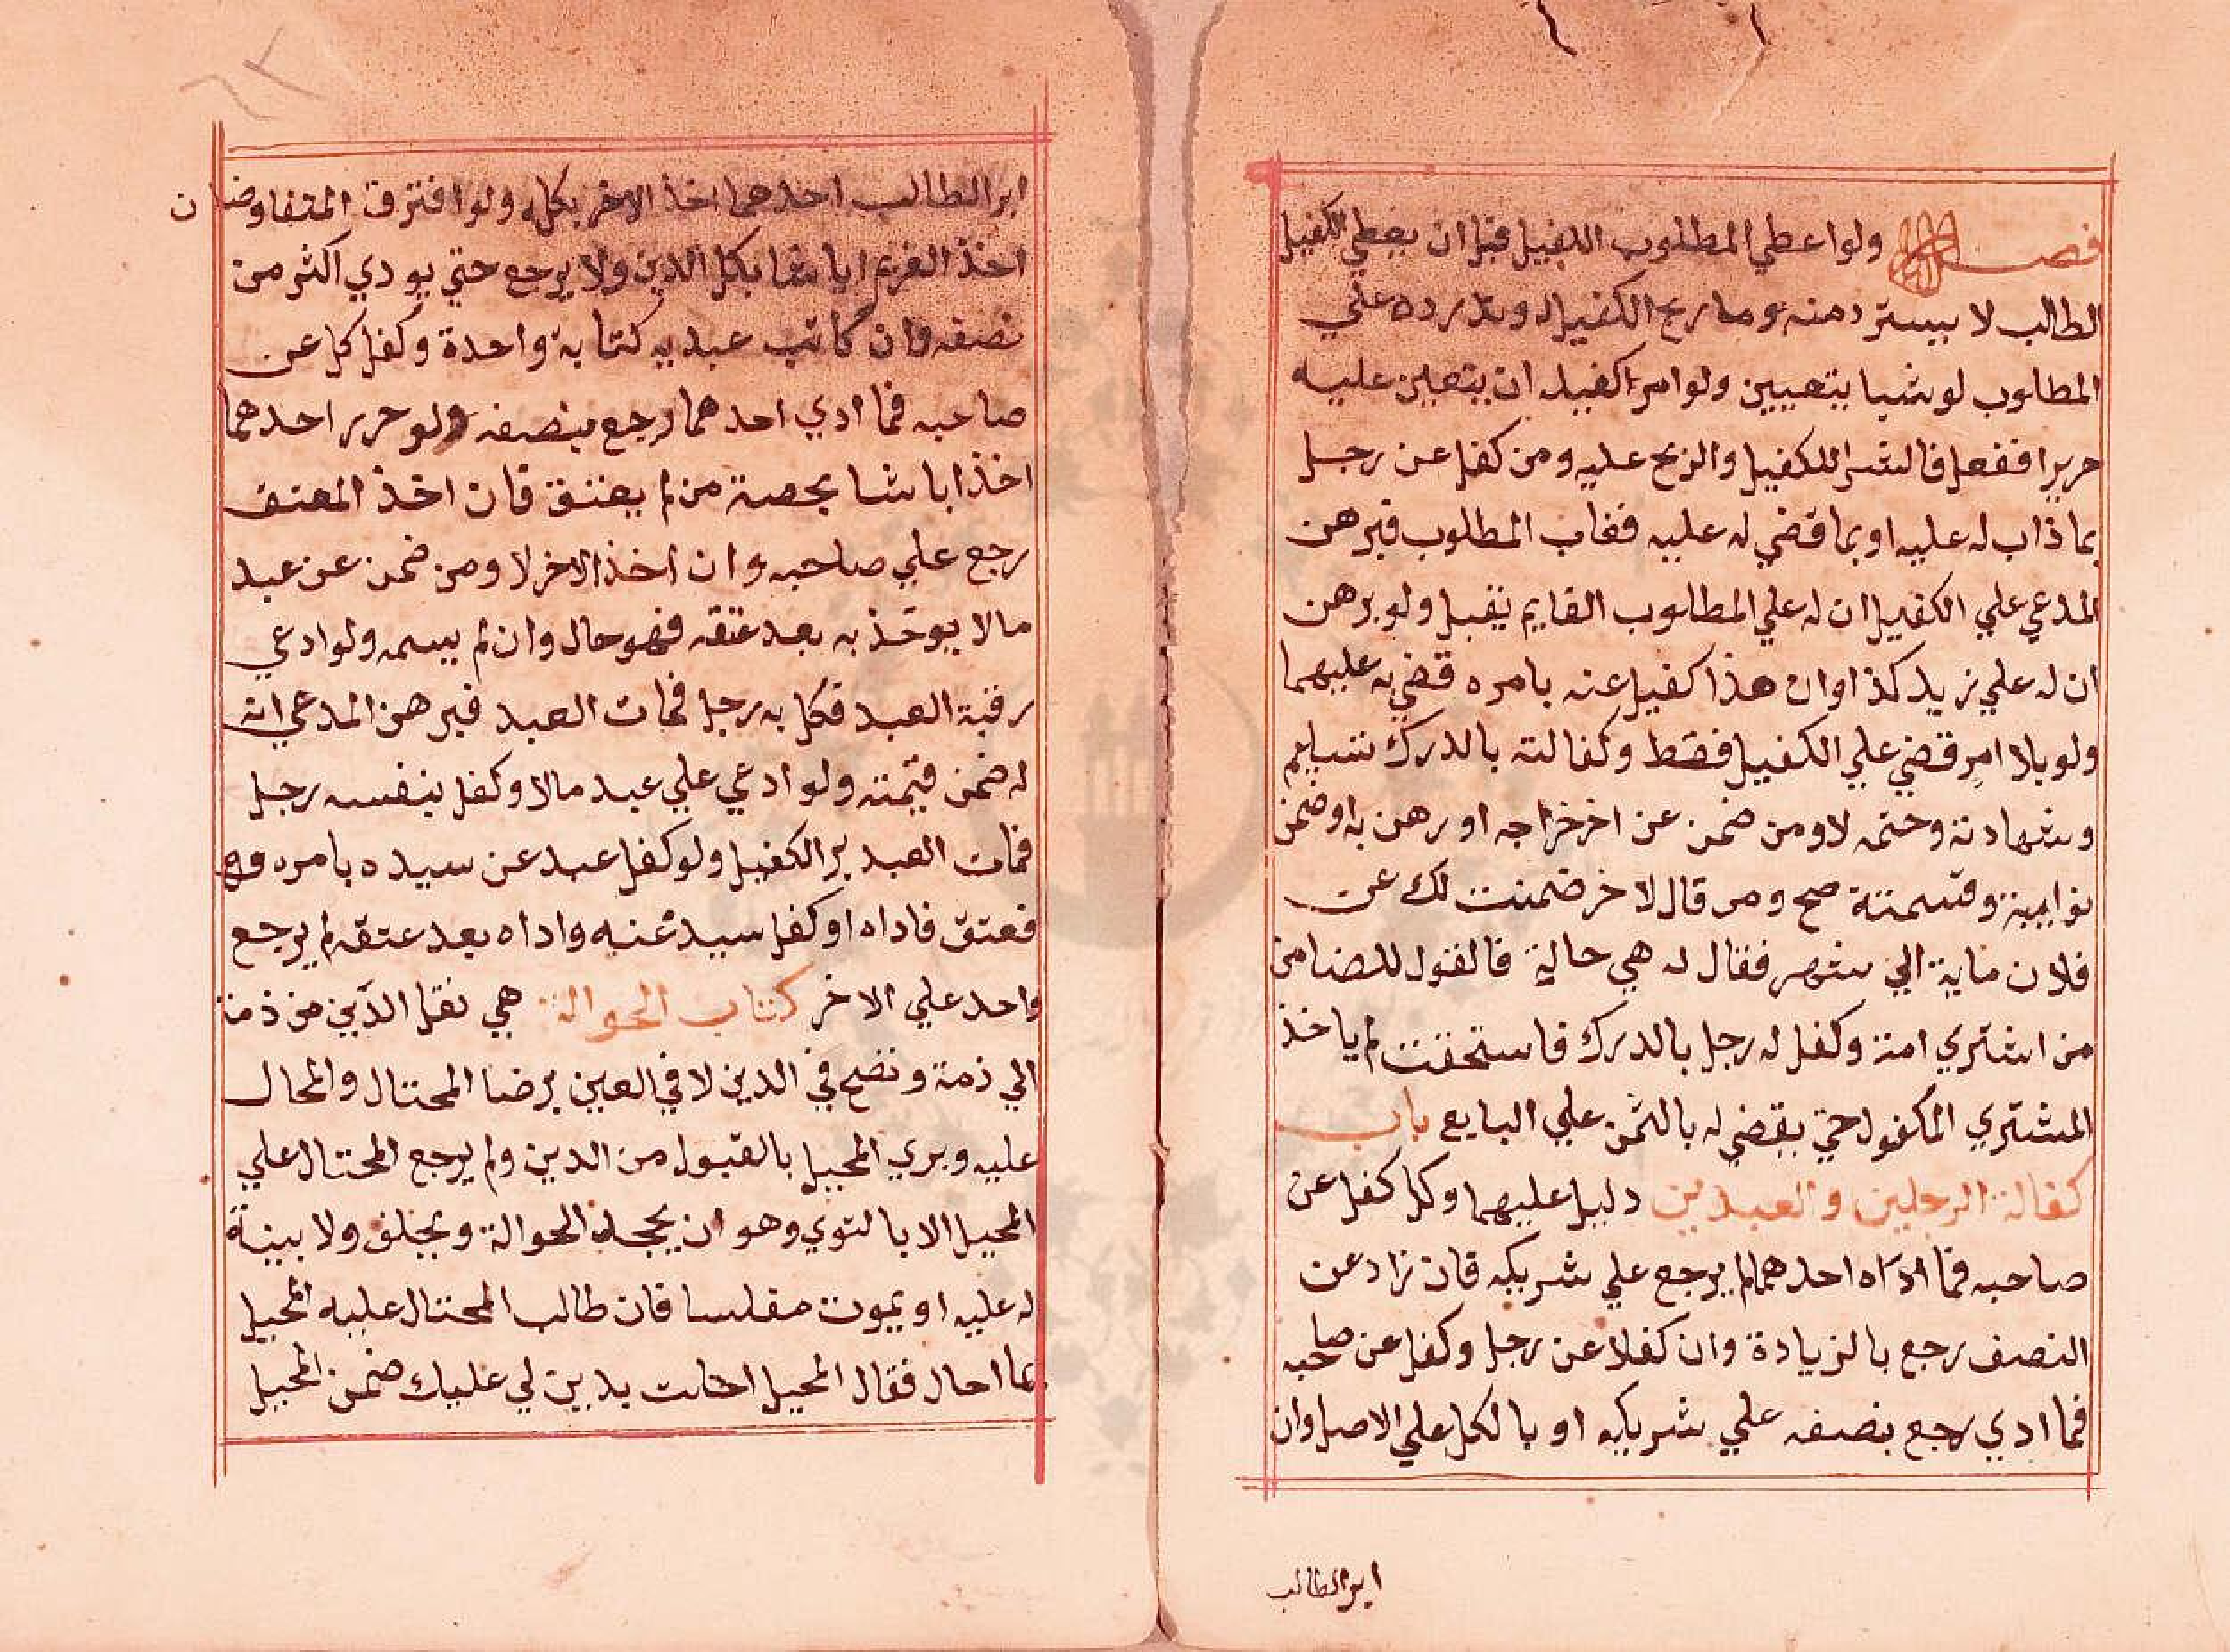 فصل ولو اعطي المطلوب الكفيل قبل ان يعطي الكفيل
الطالب لا يسترد منه وما ربح الكفيل له وند رده علي
المطلوب لو شيا يتعيين ولو امر كفيله ان يتعين عليه
حريرا ففعل فالشرا للكفيل والربح عليه ومن كفل عن رجل
بما ذاب له عليه او بما قضي له عليه فغاب المطلوب فبرهن
المدعي علي الكفيل ان له علي المطلوب القايم يقبل ولو برهن
ان له علي زيد كذا وان هذا كفيل عنه بامره قضي به عليهما
ولو بلا امر قضي علي الكفيل فقط وكفالته بالدرك تسليم
وشهادته وختمه لا ومن ضمن عن اخر خراجه او رهن به او ضمن
نوايبه وقسمته صح ومن قال لاخر ضمنت لك عن
فلان ماية الي شهر فقال له هي حالية فالقول للضامن
من اشتري امة وكفل له رجل بالدرك فاستحقت لم ياخذ
المشتري المكفول حتي يقضي له بالثمن علي البايع باب
كفالة الرجلين والعبدين دليل عليهما وكل كفل عن
صاحبه فما اداه احدهما لم يرجع علي شريكه فان زاد عن
النصف رجع بالزيادة وان كفلا عن رجل وكفل عن صاحبه
فما ادي رجع بنصفه علي شريكه او بالكل علي الاصل وان
ابرا الطالب
ابرا الطالب احدهما اخذ الاخر بكله ولو افترق المتفاوضان
اخذ الغريم ايا شا بكل الدين ولا يرجع حتي يودي اكثر من
نصفه وان كاتب عبديه كتابة واحدة وكفل كل عن
صاحبه فما ادي احدهما رجع بنصفه ولو حرر احدهما
اخذ ايا شا بحصة من لم يعتق فان اخذ المعتق
رجع علي صاحبه وان اخذ الاخر لا ومن ضمن عن عبد
مالا يوخذ به بعد عتقه فهو حال وان لم يسمه ولو ادعي
رقبة العبد فكل به رجل فمات العبد فبرهن المدعي انه
له ضمن قيمته ولو ادعي علي عبد مالا وكفل بنفسه رجل
فمات العبد بر الكفيل ولو كفل عبد عن سيده بامره
فعتق فاداه او كفل سيده عنه واداه بعد عتقه لم يرجع
واحد علي الاخر كتاب الحوالة هي نقل الدين من ذمة
الي ذمة وتصح في الدين لا في العين برضا المحتال والمحال
عليه وبري المحيل بالقبول من الدين ولم يرجع المحتال علي
المحيل الا بالتوي وهو ان يجحد الحوالة ويحلف ولا بينة
له عليه او يموت مفلسا فان طالب المحتال عليه المحيل
بما احال فقال المحيل احلت بدين لي عليك ضمن المحيل